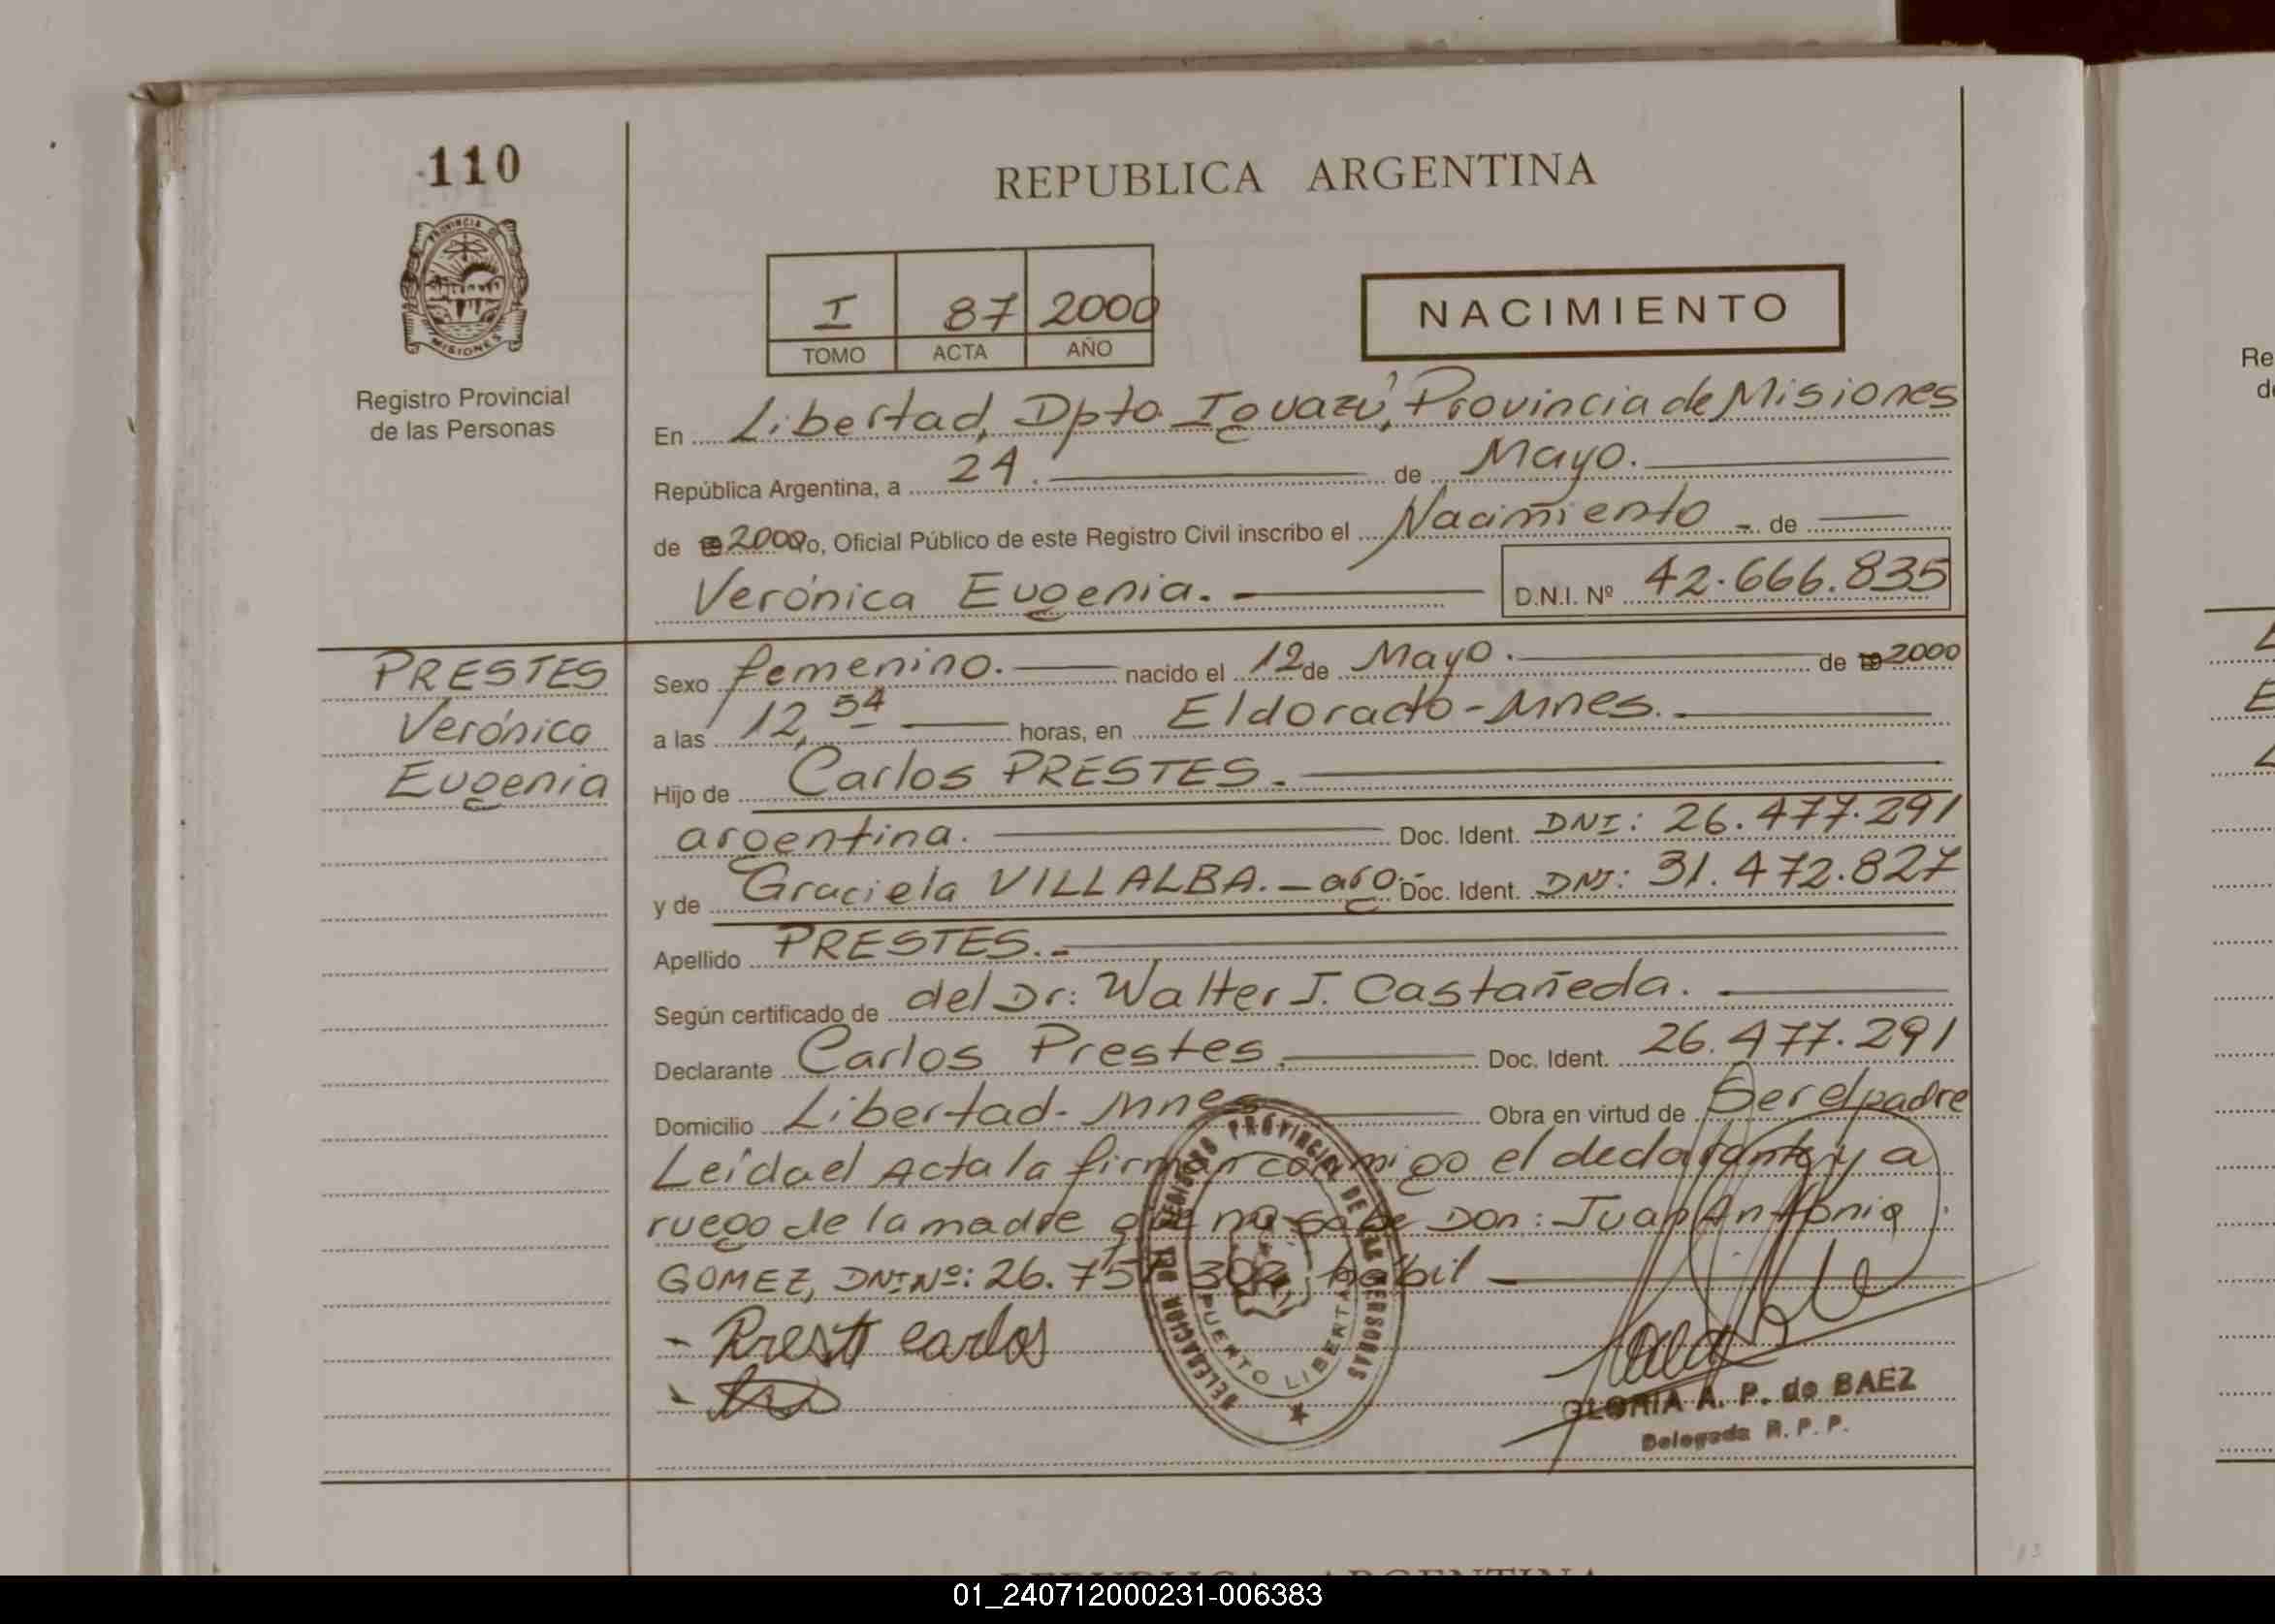 110
REPUBLICA ARGENTINA
PROVINCIA DE
MISIONES
Registro Provincial
de las Personas
I 87 2000
TOMO ACTA AÑO
NACIMIENTO
En Libertad, Dpto. Iguazú, Provincia de Misiones
República Argentina, a 24. de Mayo.
de 2000 yo, Oficial Público de este Registro Civil inscribo el Nacimiento - de
Verónica Eugenia. D.N.I. Nº 42.666.835
PRESTES
Verónica
Eugenia
Sexo femenino. nacido el 12 de Mayo. de 2000
a las 12,54 horas, en Eldorado-Mnes.
Hijo de Carlos PRESTES.
argentina. Doc. Ident. DNI: 26.477.291
y de Graciela VILLALBA. - arg. Doc. Ident. DNI: 31.472.827
Apellido PRESTES.-
Según certificado de del Dr: Walter J. Castañeda.
Declarante Carlos Prestes. Doc. Ident. 26.477.291
Domicilio Libertad- Mnes Obra en virtud de Ser el padre
Leída el Acta la firman conmigo el declarante y a
ruego de la madre que no sabe Don: Juan Antonio
GOMEZ, DNI Nº: 26. hábil
- Prest carlos
DELEGACION DEL REGISTRO PROVINCIAL DE LAS PERSONAS
PUERTO LIBERTAD
GLORIA A. P. de BAEZ
Delegada R. P. P.
Re
REPUBLICA ARGENTINA
01_240712000231-006383